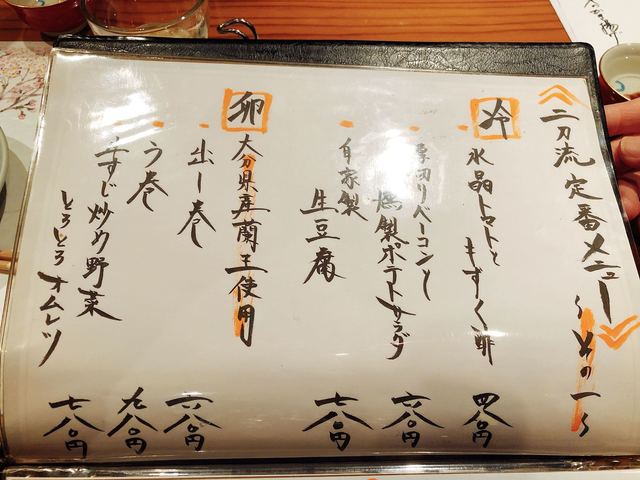 二刀流 定番メニュー 〜その一〜
冷
水晶トマトと
もずく酢
四八〇円
厚切りベーコンと
燻製ポテトサラダ
六八〇円
自家製
生豆腐
七八〇円
卵
大分県産蘭王使用
出し巻
六八〇円
う巻
九八〇円
牛すじ炒め野菜
とろとろオムレツ
七八〇円